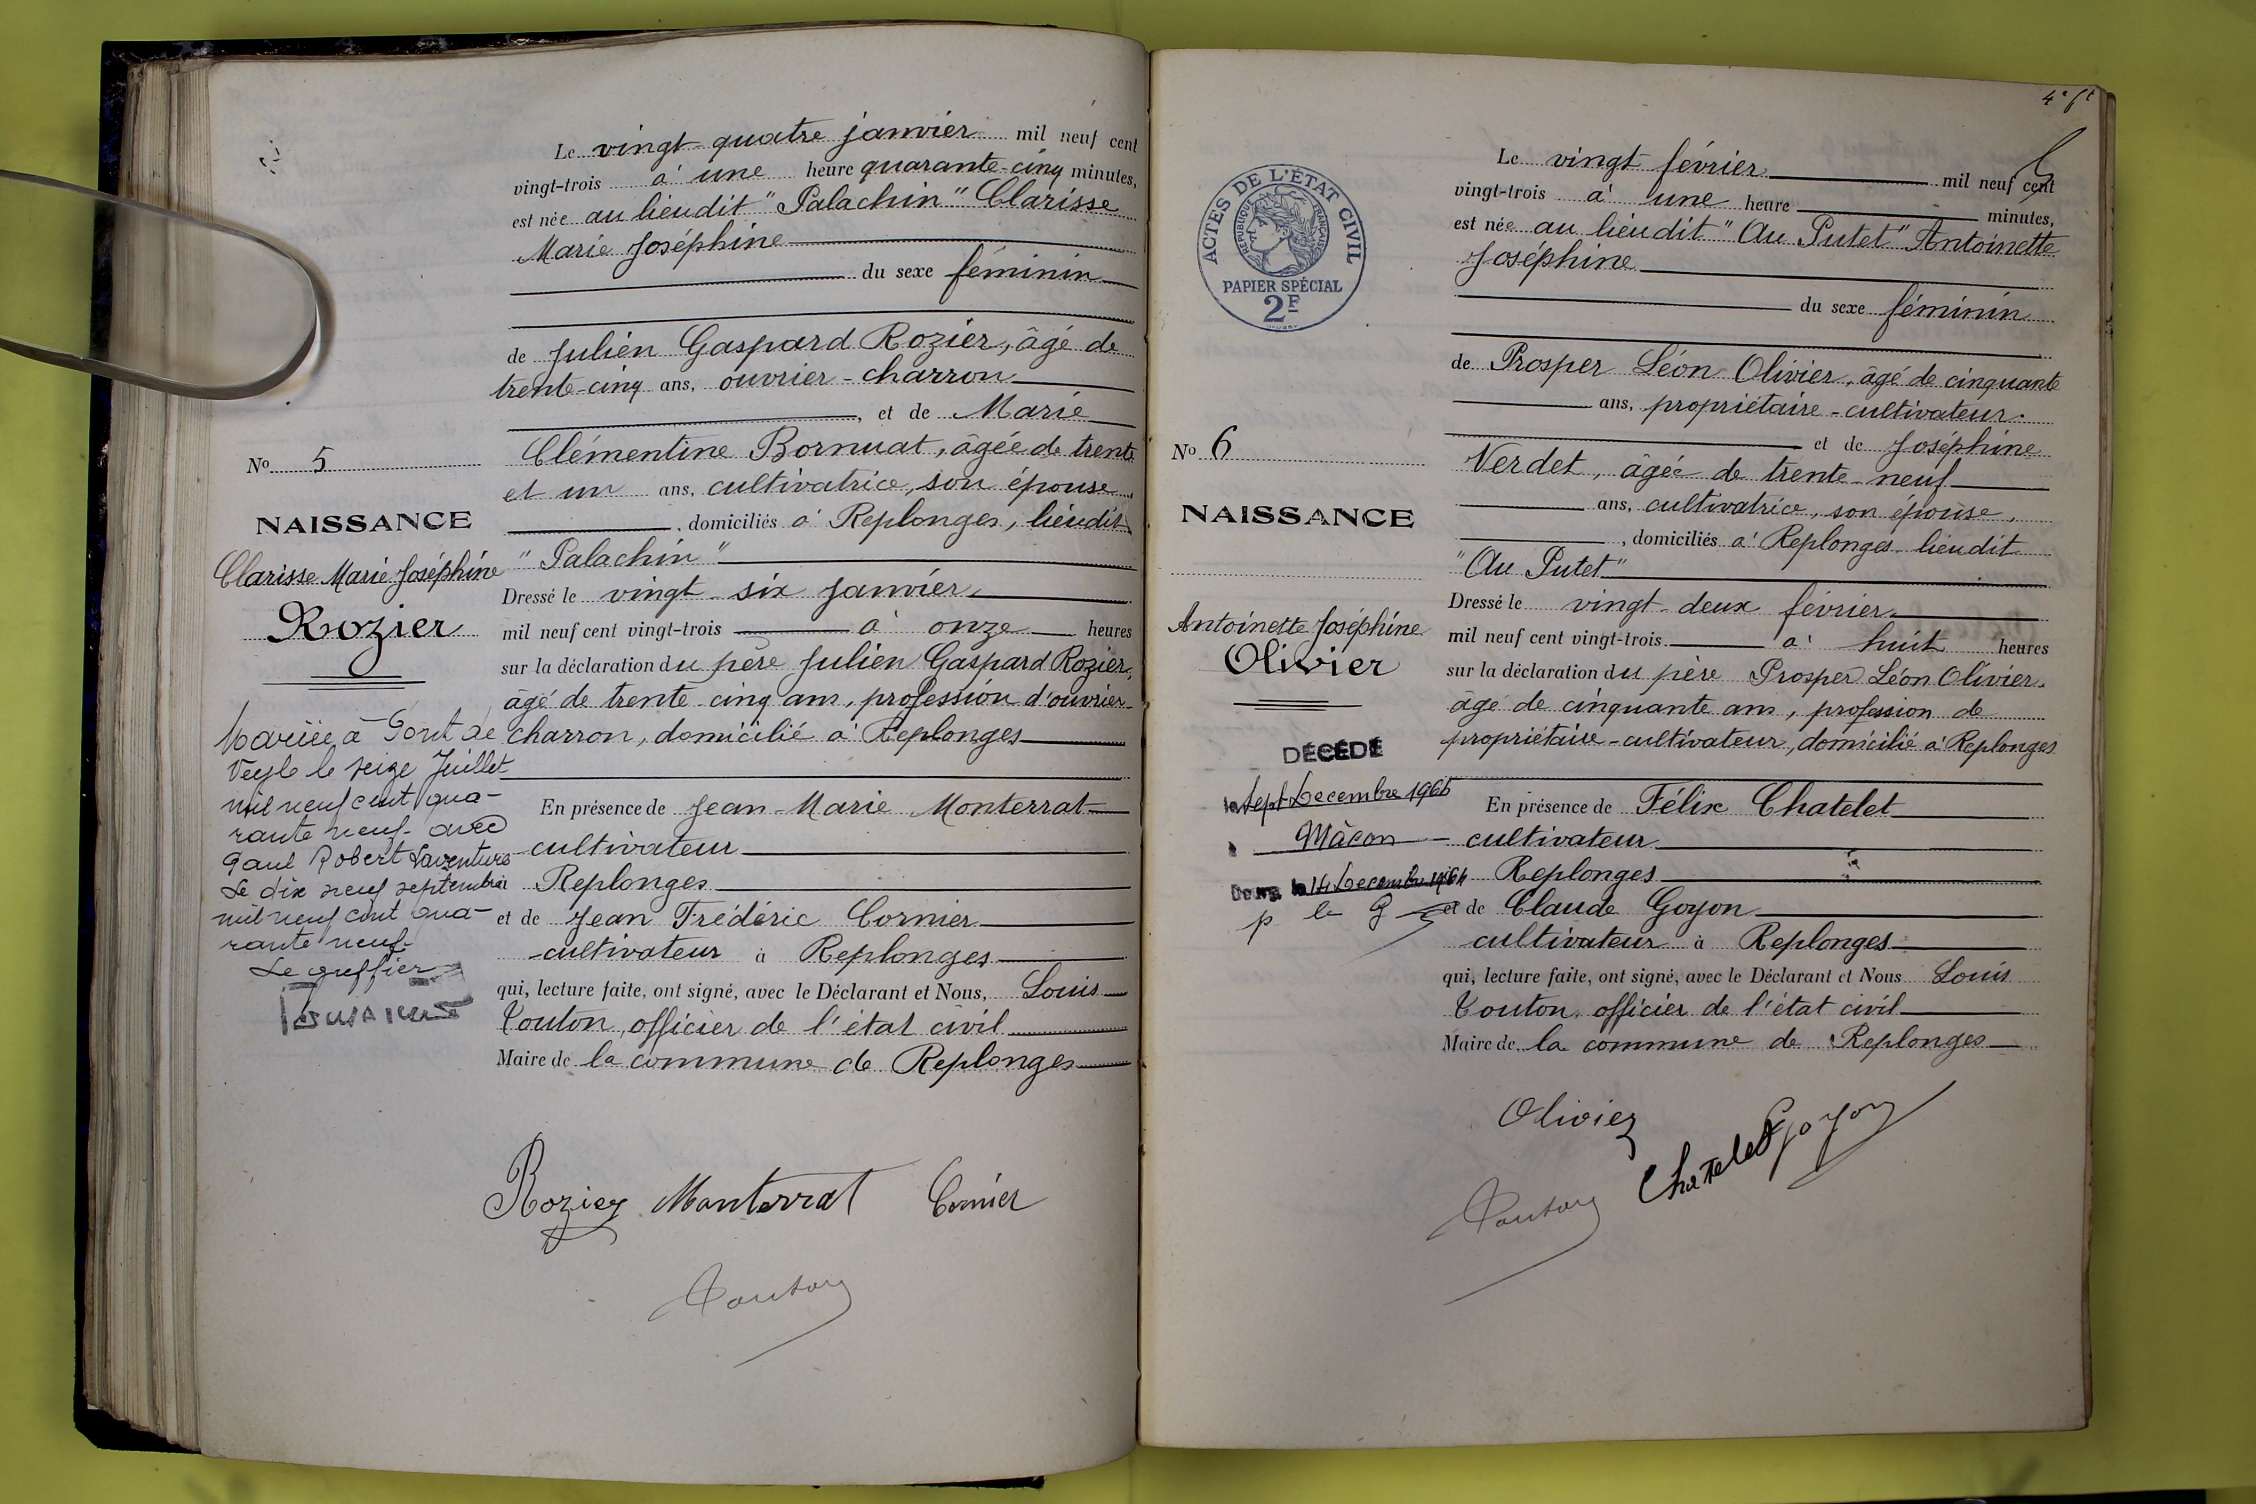 Le vingt-quatre janvier mil neuf cent
vingt-trois à une heure quarante-cinq minutes,
est née au lieudit "Palachin" Clarisse
Marie Joséphine
du sexe féminin
de Julien Gaspard Rozier, âgé de
trente-cinq ans, ouvrier-charron
, et de Marie
Clémentine Bornuat, âgée de trente
et un ans, cultivatrice, son épouse
, domiciliés à Replonges, lieudit
"Palachin"
Dressé le vingt-six janvier
mil neuf cent vingt-trois à onze heures
sur la déclaration du père Julien Gaspard Rozier,
âgé de trente cinq ans, profession d'ouvrier-
charron, domicilié à Replonges
En présence de Jean-Marie Monterrat
cultivateur
Replonges
et de Jean Frédéric Cornier
cultivateur à Replonges
qui, lecture faite, ont signé, avec le Déclarant et Nous, Louis
Touton, officier de l'état civil
Maire de la commune de Replonges
Rozier Monterrat Cornier
Touton
No 5
NAISSANCE
Clarisse Marie Joséphine
Rozier
Mariée à Pont de
Veyle le seize Juillet
mil neuf cent qua-
rante neuf avec
Paul Robert Laventure
Le dix neuf septembre
mil neuf cent qua-
rante neuf.
Le greffier
4e ft
ACTES DE L'ÉTAT CIVIL
RÉPUBLIQUE FRANÇAISE
PAPIER SPÉCIAL
2F
No 6
NAISSANCE
Antoinette Joséphine
Olivier
DÉCÉDÉ
le sept Decembre 1964
Mâcon
Bourg le 14 Decembre 1964
p le G
Le vingt février mil neuf cent
vingt-trois à une heure minutes,
est née au lieudit "Au Putet" Antoinette
Joséphine
du sexe féminin
de Prosper Léon Olivier, âgé de cinquante
ans, propriétaire-cultivateur
et de Joséphine
Verdet, âgée de trente-neuf
ans, cultivatrice, son épouse,
, domiciliés à Replonges lieudit
"Au Putet"
Dressé le vingt-deux février
mil neuf cent vingt-trois à huit heures
sur la déclaration du père Prosper Léon Olivier
âgé de cinquante ans, profession de
propriétaire-cultivateur, domicilié à Replonges
En présence de Félix Chatelet
cultivateur
Replonges
et de Claude Goyon
cultivateur à Replonges
qui, lecture faite, ont signé, avec le Déclarant et Nous Louis
Touton, officier de l'état civil
Maire de la commune de Replonges
Olivier
Chatelet Goyon
Touton